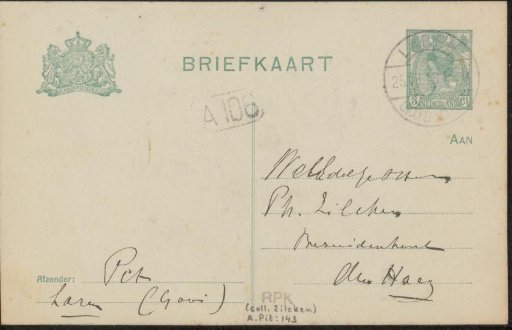 BRIEFKAART
NEDERLAND
25
A 106
AAN
Ph. Zilcken
Bezuidenhout
den Haag
Afzender:
Laren (Gooi)
RPK
(coll. Zilcken)
A.Pit: 143